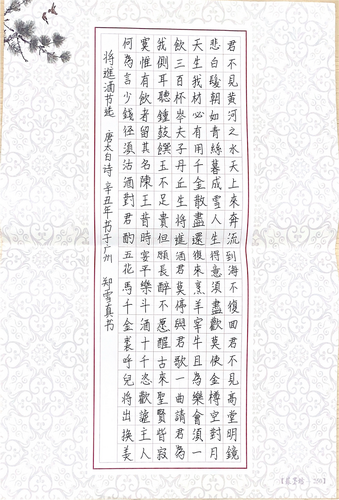 君不見黃河之水天上來奔流到海不復回君不見高堂明鏡
悲白髮朝如青絲暮成雪人生得意須盡歡莫使金樽空對月
天生我材必有用千金散盡還復來烹羊宰牛且為樂會須一
飲三百杯岑夫子丹丘生將進酒君莫停與君歌一曲請君為
我側耳聽鐘鼓饌玉不足貴但願長醉不愿醒古來聖賢皆寂
寞惟有飲者留其名陳王昔時宴平樂斗酒十千恣歡謔主人
何為言少錢徑須沽酒對君酌五花馬千金裘呼兒將出換美
将進酒节选 唐太白诗 辛丑年书于广州 郑雪真书